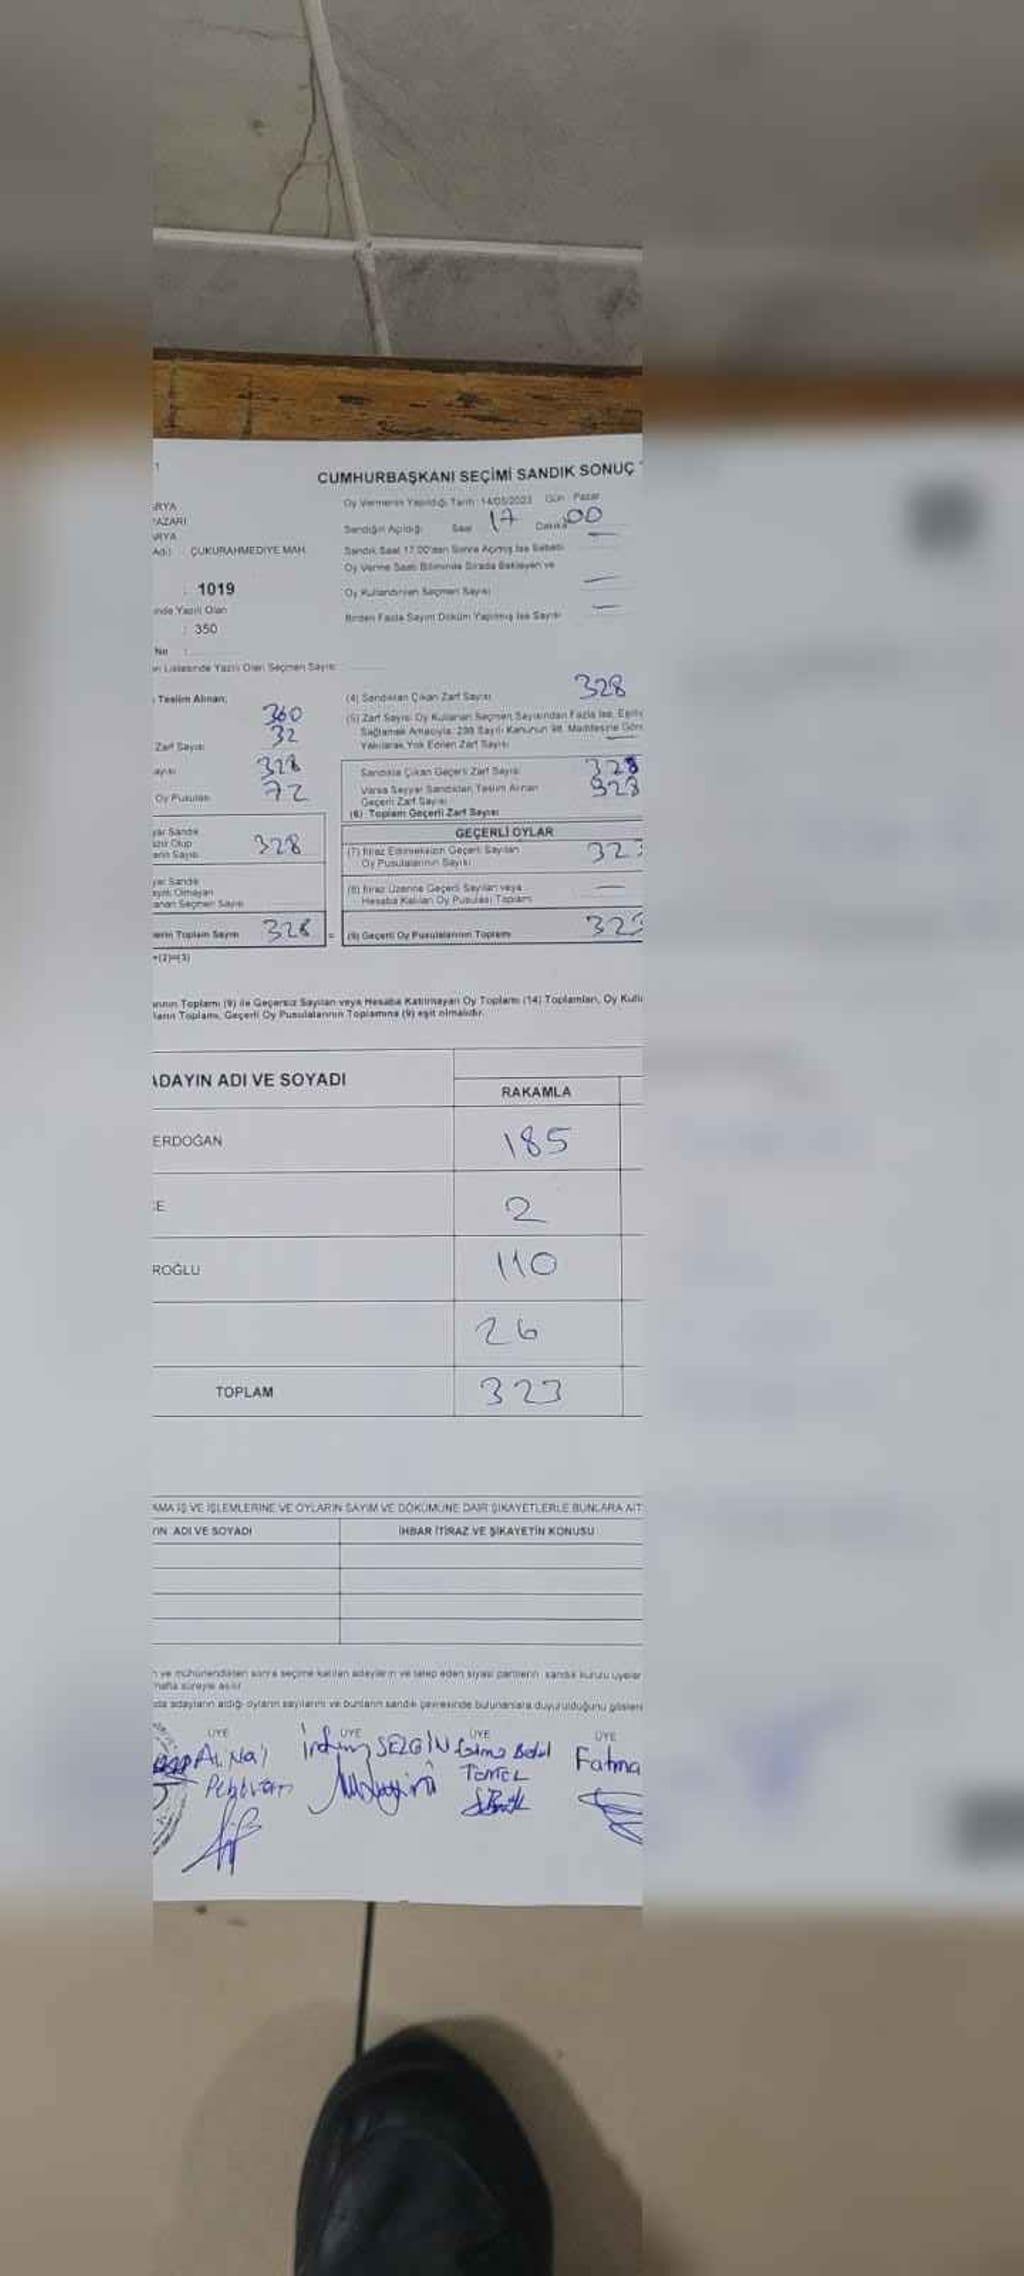 CUMHURBAŞKANI SEÇİMİ SANDIK SONUÇ
ARYA
PAZARI
ARYA
Adı : ÇUKURAHMEDİYE MAH.
: 1019
inde Yazılı Olan
: 350
No :
Oy Vermenin Yapıldığı Tarih: 14/05/2023 Gün: Pazar
Sandığın Açıldığı Saat 17 Dakika 00
Sandık Saat 17:00'den Sonra Açılmış İse Sebebi
Oy Verme Saati Bitiminde Sırada Bekleyen ve
Oy Kullandırılan Seçmen Sayısı
Birden Fazla Sayım Döküm Yapılmış İse Sayısı
Listesinde Yazılı Olan Seçmen Sayısı:
Teslim Alınan; 360
Zarf Sayısı 32
ayısı 328
Oy Pusulası 72
yar Sandık
Olup
Sayısı 328
yar Sandık
Olmayan
anan Seçmen Sayısı
lerin Toplam Sayısı 328 =
+(2)=(3)
(4) Sandıktan Çıkan Zarf Sayısı 328
(5) Zarf Sayısı Oy Kullanan Seçmen Sayısından Fazla İse, Eşitliği
Sağlamak Amacıyla, 298 Sayılı Kanunun 98. Maddesine Göre
Yakılarak Yok Edilen Zarf Sayısı
Sandıkta Çıkan Geçerli Zarf Sayısı 328
Varsa Seyyar Sandıktan Teslim Alınan
Geçerli Zarf Sayısı
(6) Toplam Geçerli Zarf Sayısı 328
GEÇERLİ OYLAR
(7) İtiraz Edilmeksizin Geçerli Sayılan
Oy Pusulalarının Sayısı 323
(8) İtiraz Üzerine Geçerli Sayılan veya
Hesaba Katılan Oy Pusulası Toplamı
(9) Geçerli Oy Pusulalarının Toplamı 323
Toplamı (9) ile Geçersiz Sayılan veya Hesaba Katılmayan Oy Toplamı (14) Toplamları, Oy Kulla
ların Toplamı, Geçerli Oy Pusulalarının Toplamına (9) eşit olmalıdır.
ADAYIN ADI VE SOYADI
RAKAMLA
ERDOĞAN 185
CE 2
ROĞLU 110
26
TOPLAM 323
AMA İŞ VE İŞLEMLERİNE VE OYLARIN SAYIM VE DÖKÜMÜNE DAİR ŞİKAYETLERLE BUNLARA AİT
IN ADI VE SOYADI İHBAR İTİRAZ VE ŞİKAYETİN KONUSU
ve mühürlendikten sonra seçime katılan adayların ve talep eden siyasi partilerin sandık kurulu üyeler
hafta süreyle asılır.
da adayların aldığı oyların sayılarını ve bunların sandık çevresinde bulunanlara duyurulduğunu gösteren
ÜYE ÜYE ÜYE ÜYE
SEZGİN Betül Fatma
TEMEL